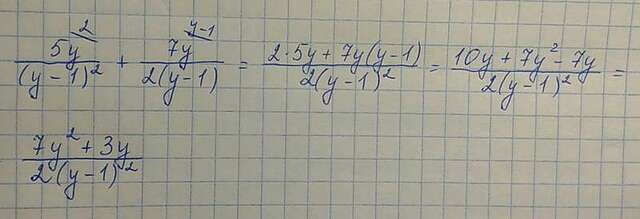 5y/(y-1)² ^2 + 7y/2(y-1) ^y-1 = 2·5y+7y(y-1)/2(y-1)² = 10y+7y²-7y/2(y-1)² =
7y²+3y/2(y-1)²